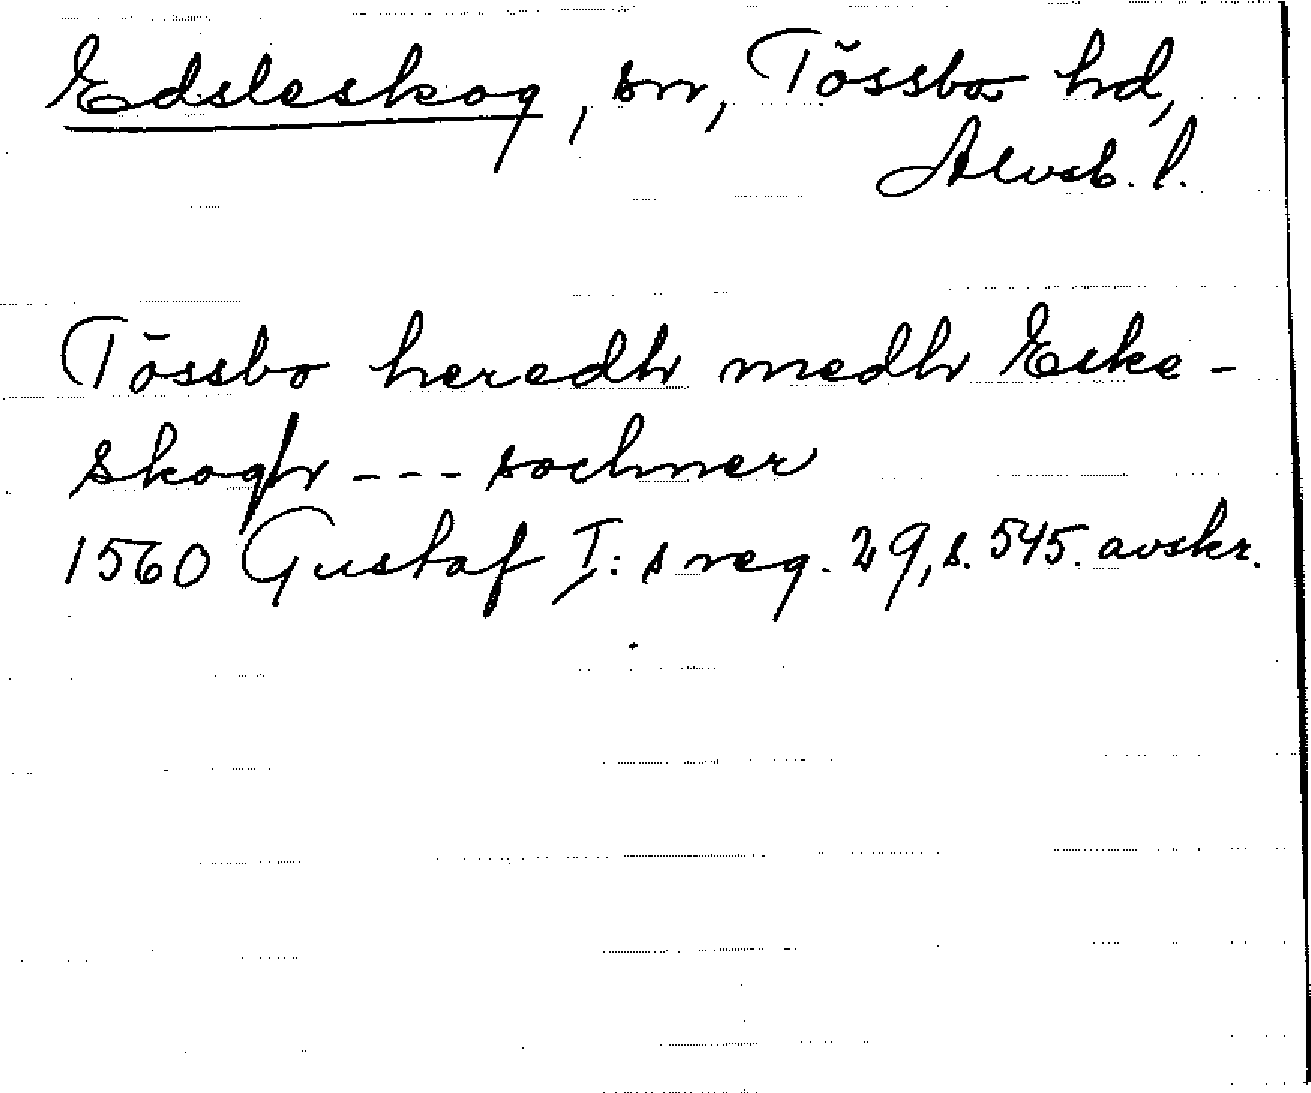 Edsleskog, sn, Tössbo hd,
Älvsb. l.
Tössbo heredh medh Eske-
skogh --- sochner
1560 Gustaf I:s reg. 29, s. 545. avskr.